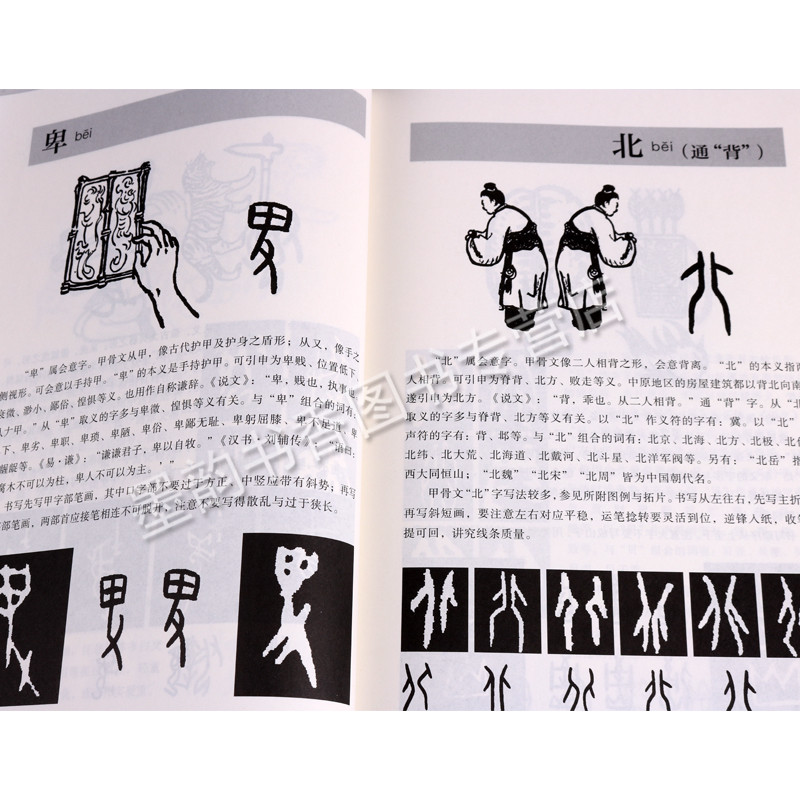 卑 bēi
“卑”属会意字。甲骨文从甲，像古代护甲及护身之盾形；从又，像手之
侧视形。可会意以手持甲。“卑”的本义是手持护甲。可引申为卑贱、位置低下
微、渺小、鄙俗、惶惧等义。也用作自称谦辞。《说文》：“卑，贱也，执事也
甲。”从“卑”取义的字多与卑微、惶惧等义有关。与“卑”组合的词有：
下、卑劣、卑职、卑琐、卑陋、卑俗、卑鄙无耻、卑躬屈膝、卑不足道、
等。《易·谦》：“谦谦君子，卑以自牧。”《汉书·刘辅传》：“语曰：
腐木不可以为柱，卑人不可以为主。’”
书写先写甲字部笔画，其中口字部不要过于方正，中竖应带有斜势；再写
部笔画，两部首应接笔相连不可脱开，注意不要写得散乱与过于狭长。
北 běi（通“背”）
“北”属会意字。甲骨文像二人相背之形，会意背离。“北”的本义指两
人相背。可引申为脊背、北方、败走等义。中原地区的房屋建筑都以背向南
遂引申为北方。《说文》：“背，乖也。从二人相背。”通“背”字。从“北
取义的字多与脊背、北方等义有关。以“北”作义符的字有：冀。以“北”
声符的字有：背、邶等。与“北”组合的词有：北京、北海、北方、北极、北伐
北纬、北大荒、北海道、北戴河、北斗星、北洋军阀等。另有：“北岳”指
西大同恒山；“北魏”“北宋”“北周”皆为中国朝代名。
甲骨文“北”字写法较多，参见所附图例与拓片。书写从左往右，先写主折
再写斜短画，要注意左右对应平稳，运笔捻转要灵活到位，逆锋入纸，收笔
提可回，讲究线条质量。
墨韵书香图书专营店